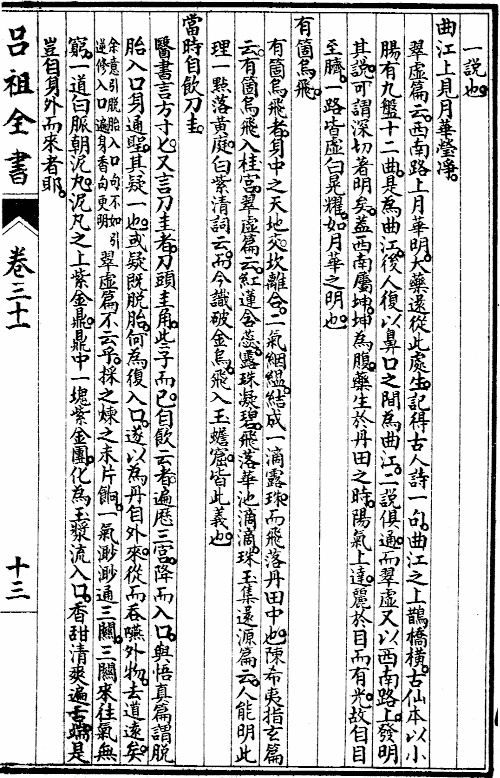 一說也
曲江上見月華瑩淨
翠虛篇云西南路上月華明大藥還從此處生記得古人詩一句曲江之上鵲橋橫古仙本以小
腸有九盤十二曲是為曲江後人復以鼻口之間為曲江二說俱通而翠虛又以西南路上發明
其說可謂深切著明矣蓋西南屬坤坤為腹藥生於丹田之時陽氣上達麗於目而有光故自目
至臍一路皆虛白晃耀如月華之明也
有箇烏飛
有箇烏飛者身中之天地交坎離合二氣絪縕結成一滴露珠而飛落丹田中也陳希夷指玄篇
云有箇烏飛入桂宮翠虛篇云紅蓮含蕊露珠凝碧飛落華池滴滴珠玉集還源篇云人能明此
理一點落黃庭白紫清詞云而今識破金烏飛入玉蟾窟皆此義也
當時自飲刀圭
醫書言方寸匕又言刀圭者刀頭圭角些子而已自飲云者遍歷三宮降而入口與悟真篇謂脫
胎入口身通聖其疑一也或疑既脫胎何為復入口遂以為丹自外來從而吞嚥外物去道遠矣
余意引脫胎入口句不如引逆修入口遍身香句更明 翠虛篇不云乎採之煉之未片餉一氣渺渺通三關三關來往氣無
窮一道白脈朝泥丸泥丸之上紫金鼎鼎中一塊紫金團化為玉漿流入口香甜清爽遍舌端是
豈自身外而來者耶
呂祖全書
卷三十一
十三